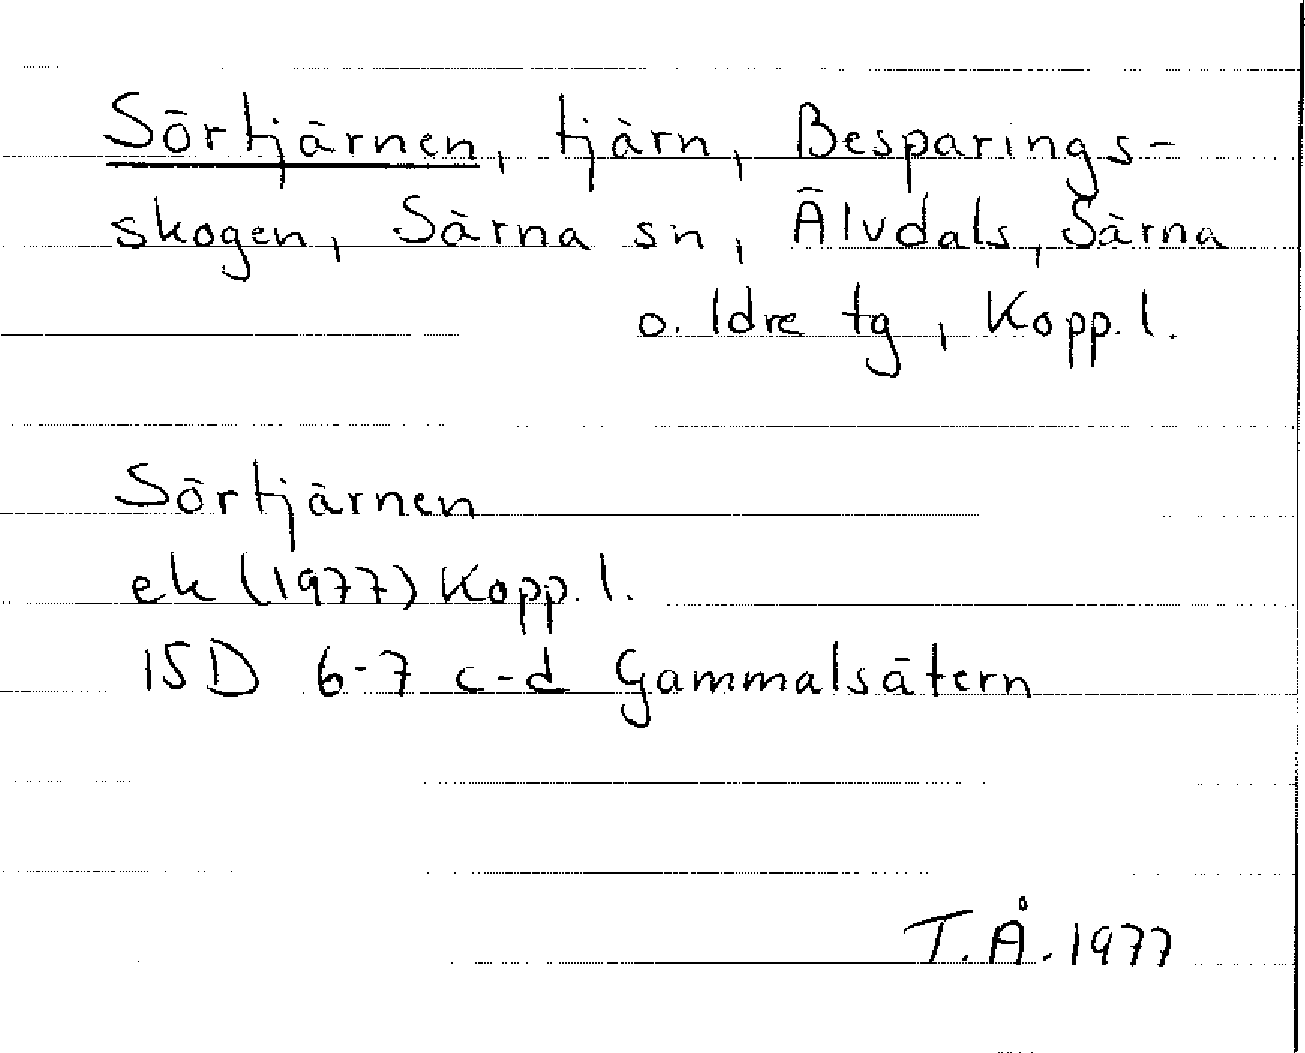 Sörtjärnen, tjärn, Besparings-
skogen, Särna sn, Älvdals, Särna
o. Idre tg, Kopp. l.
Sörtjärnen
ek (1977) Kopp. l.
15D 6-7 c-d Gammalsätern
T.Å. 1977